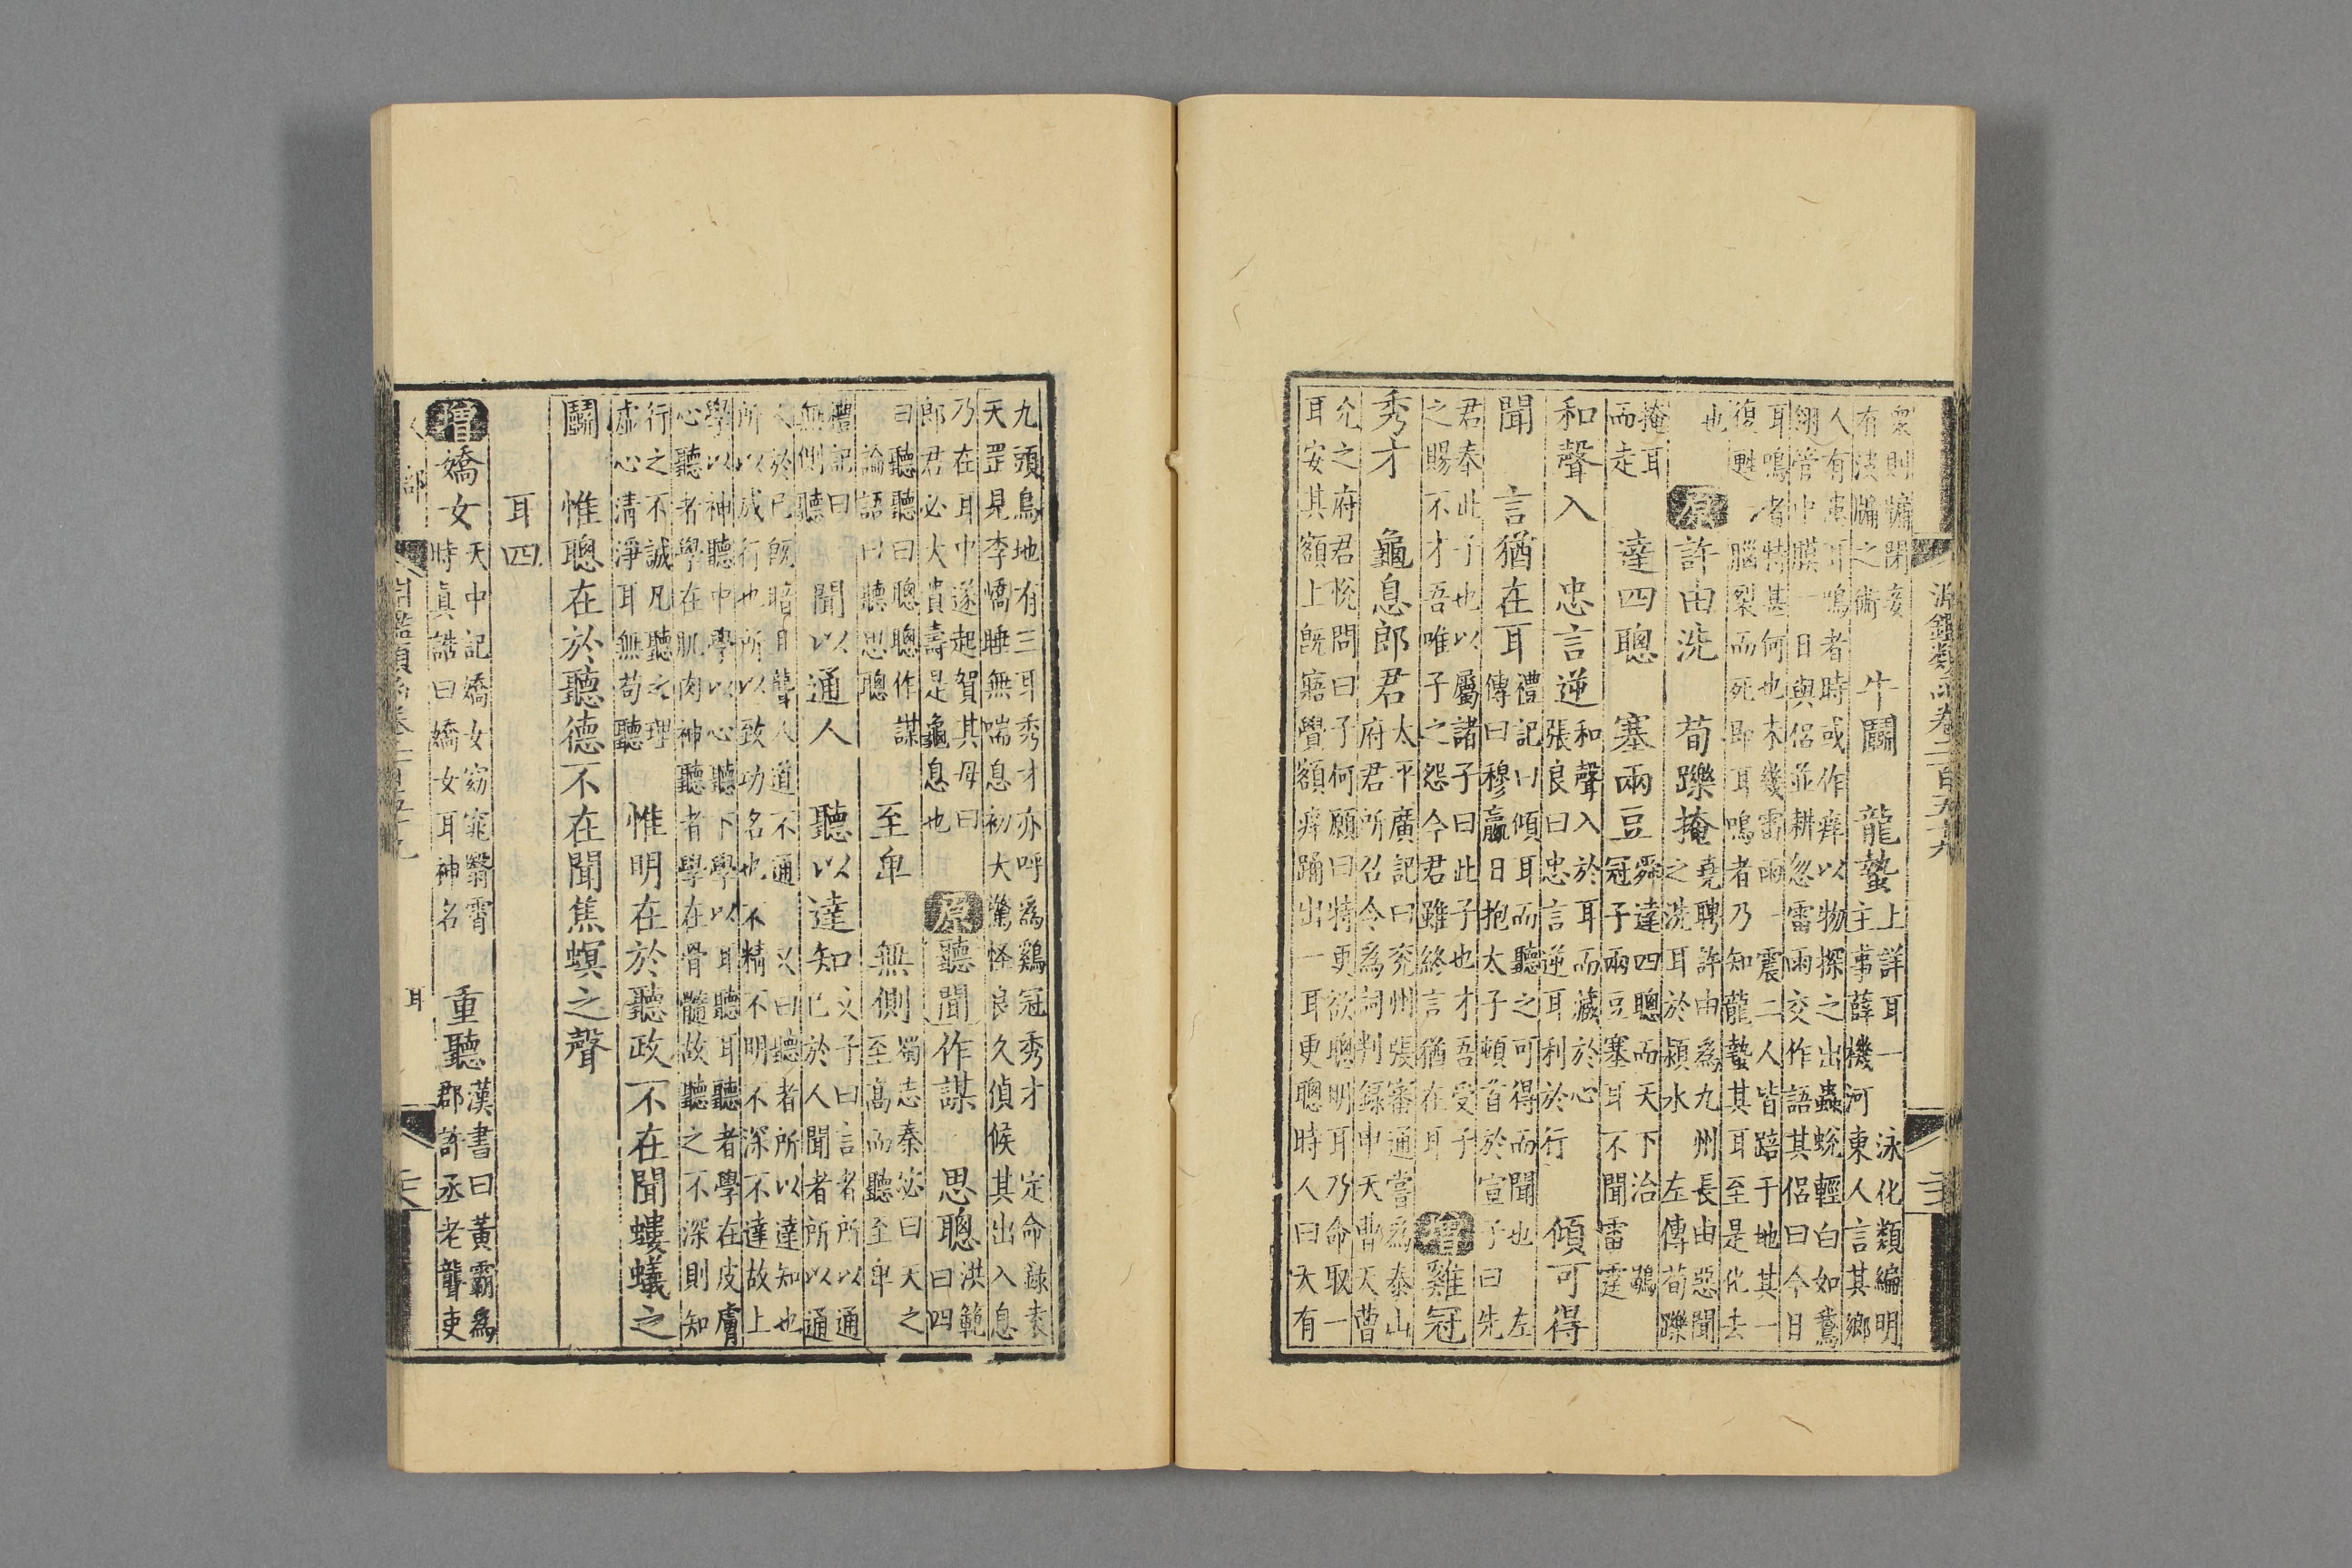 淵鑑類函卷二百五十九
衆則慵閉妄
有渫牖之術
牛鬬 龍蟄
上詳耳一 泳化類編明
主事薛機河東人言其鄉
人有患耳鳴者時或作癢以物探之出蟲蛻輕白如鵞
翎管中膜一日與侶並耕忽雷雨交作語其侶曰今日
耳鳴者特甚何也未幾雷雨一震二人皆踣于地其一
復甦一腦裂而死即耳鳴者乃知龍蟄其耳至是化去
也
原 許由洗 荀躒掩
堯聘許由為九州長由惡聞
之洗耳於潁水 左傳荀躒
掩耳
而走
達四聰 塞兩豆
舜達四聰而天下治 鶡
冠子兩豆塞耳不聞雷霆
和聲入 忠言逆
和聲入於耳而藏於心
張良曰忠言逆耳利於行
傾可得
聞 言猶在耳
禮記曰傾耳而聽之可得而聞也 左
傳曰穆嬴日抱太子頓首於宣子曰先
君奉此子也以屬諸子曰此子也才吾受子
之賜不才吾唯子之怨今君雖終言猶在耳
增 雞冠
秀才 龜息郎君
太平廣記曰兖州張審通嘗為泰山
府君所召令為詞判録中天曹天曹
允之府君悅問曰子何願曰特更欲聰明耳乃命取一
耳安其額上既寤覺額癢踊出一耳更聰時人曰天有
九頭鳥地有三耳秀才亦呼為鷄冠秀才 定命録袁
天罡見李嶠睡無喘息初大驚怪良久偵候其出入息
乃在耳中遂起賀其母曰
郎君必大貴壽是龜息也
原 聽聞作謀 思聰
洪範
曰四
曰聽聽曰聰聰作謀
論語曰聽思聰
至卑 無側
蜀志秦宓曰天之
至高而聽至卑
禮記曰
無側聽
聞以通人 聽以達知
文子曰言者所以通
己於人聞者所以通
人於己既喑且聾人道不通 又曰聽者所以達知也
所以成行也所以致功名也不精不明不深不達故上
學以神聽中學以心聽下學以耳聽耳聽者學在皮膚
心聽者學在肌肉神聽者學在骨髓故聽之不深則知
行之不誠凡聽之理
虛心清淨耳無苟聽
惟明在於聽政不在聞螻蟻之
鬬 惟聰在於聽德不在聞焦螟之聲
耳四
增 嬌女
天中記嬌女窈窕翳霄
時真誥曰嬌女耳神名
重聽
漢書曰黃霸為
郡許丞老聾吏
部 耳